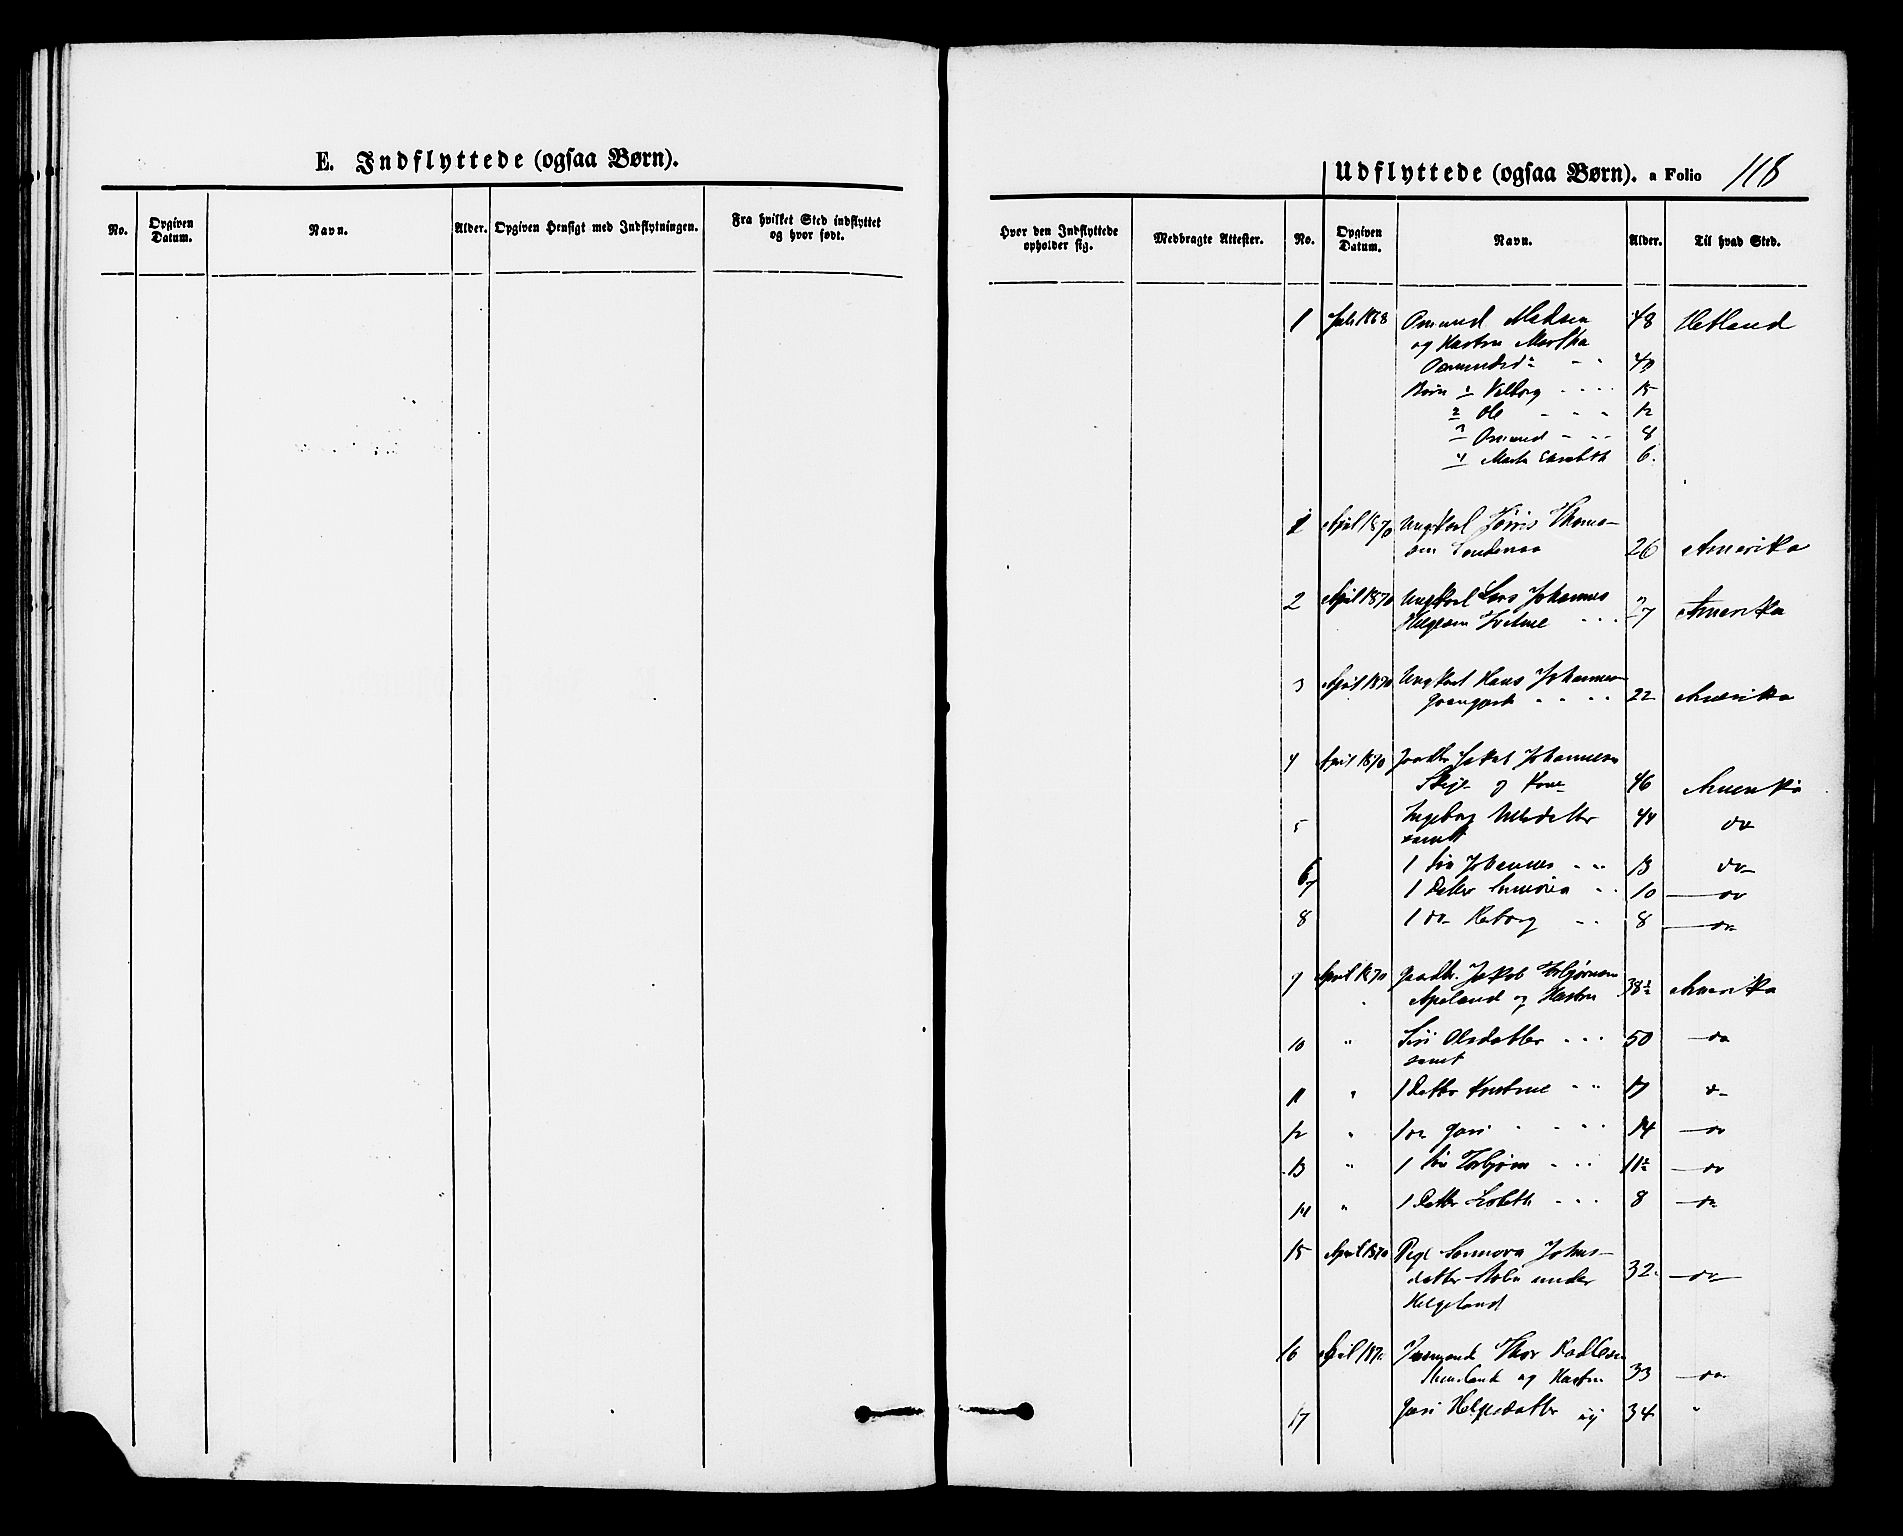 E. Indflyttede (ogsaa Børn).
No.
Opgiven Datum.
Navn.
Alder.
Opgiven Hensigt med Indflytningen.
Fra hvilket Sted indflyttet og hvor født.
Udflyttede (ogsaa Børn). a Folio 118
Hvor den Indflyttede opholder sig.
Medbragte Attester.
No.
Opgiven Datum.
Navn.
Alder.
Til hvad Sted.
1 Juli 1868 Osmund Madsen 48 Hetland
og Hustru Martha
Osmundsd 49
Børn 1 Valborg 15
2 Ole 12
3 Osmund 8
4 Marta Elisabeth 6.
1 April 1870 Ungkarl Jørris Thoma-
sen 26 Amerika
2 April 1870 Ungkarl Lars Johannes
Helgesen 27 Amerika
3 April 1870 Ungkarl Hans Johannesen
22 Amerika
4 April 1870 Gaadbr Jakob Johannesen
og Kone 46 Amerika
5 Ingeborg Nilsdatter 44 do
samt
6 1 Søn Johannes 13 do
7 1 Datter 10 do
8 1 do 8 do
9 April 1870 Gaadb. Jakob Torbjørnsen
Apeland og Hustru 38½ Amerika
10 " Siri Olsdatter 50 do
samt
11 " 1 Datter 17 do
12 " 1 do Guri 14 do
13 " 1 Søn Torbjørn 11½ do
14 " 1 Datter Lisbeth 8 do
15 April 1870 Pige Sonnova Johns-
datter under 32 do
Helgeland
16 April 1870 Thor
og Hustru 33 do
17 Guri Helgesdatter 34 "